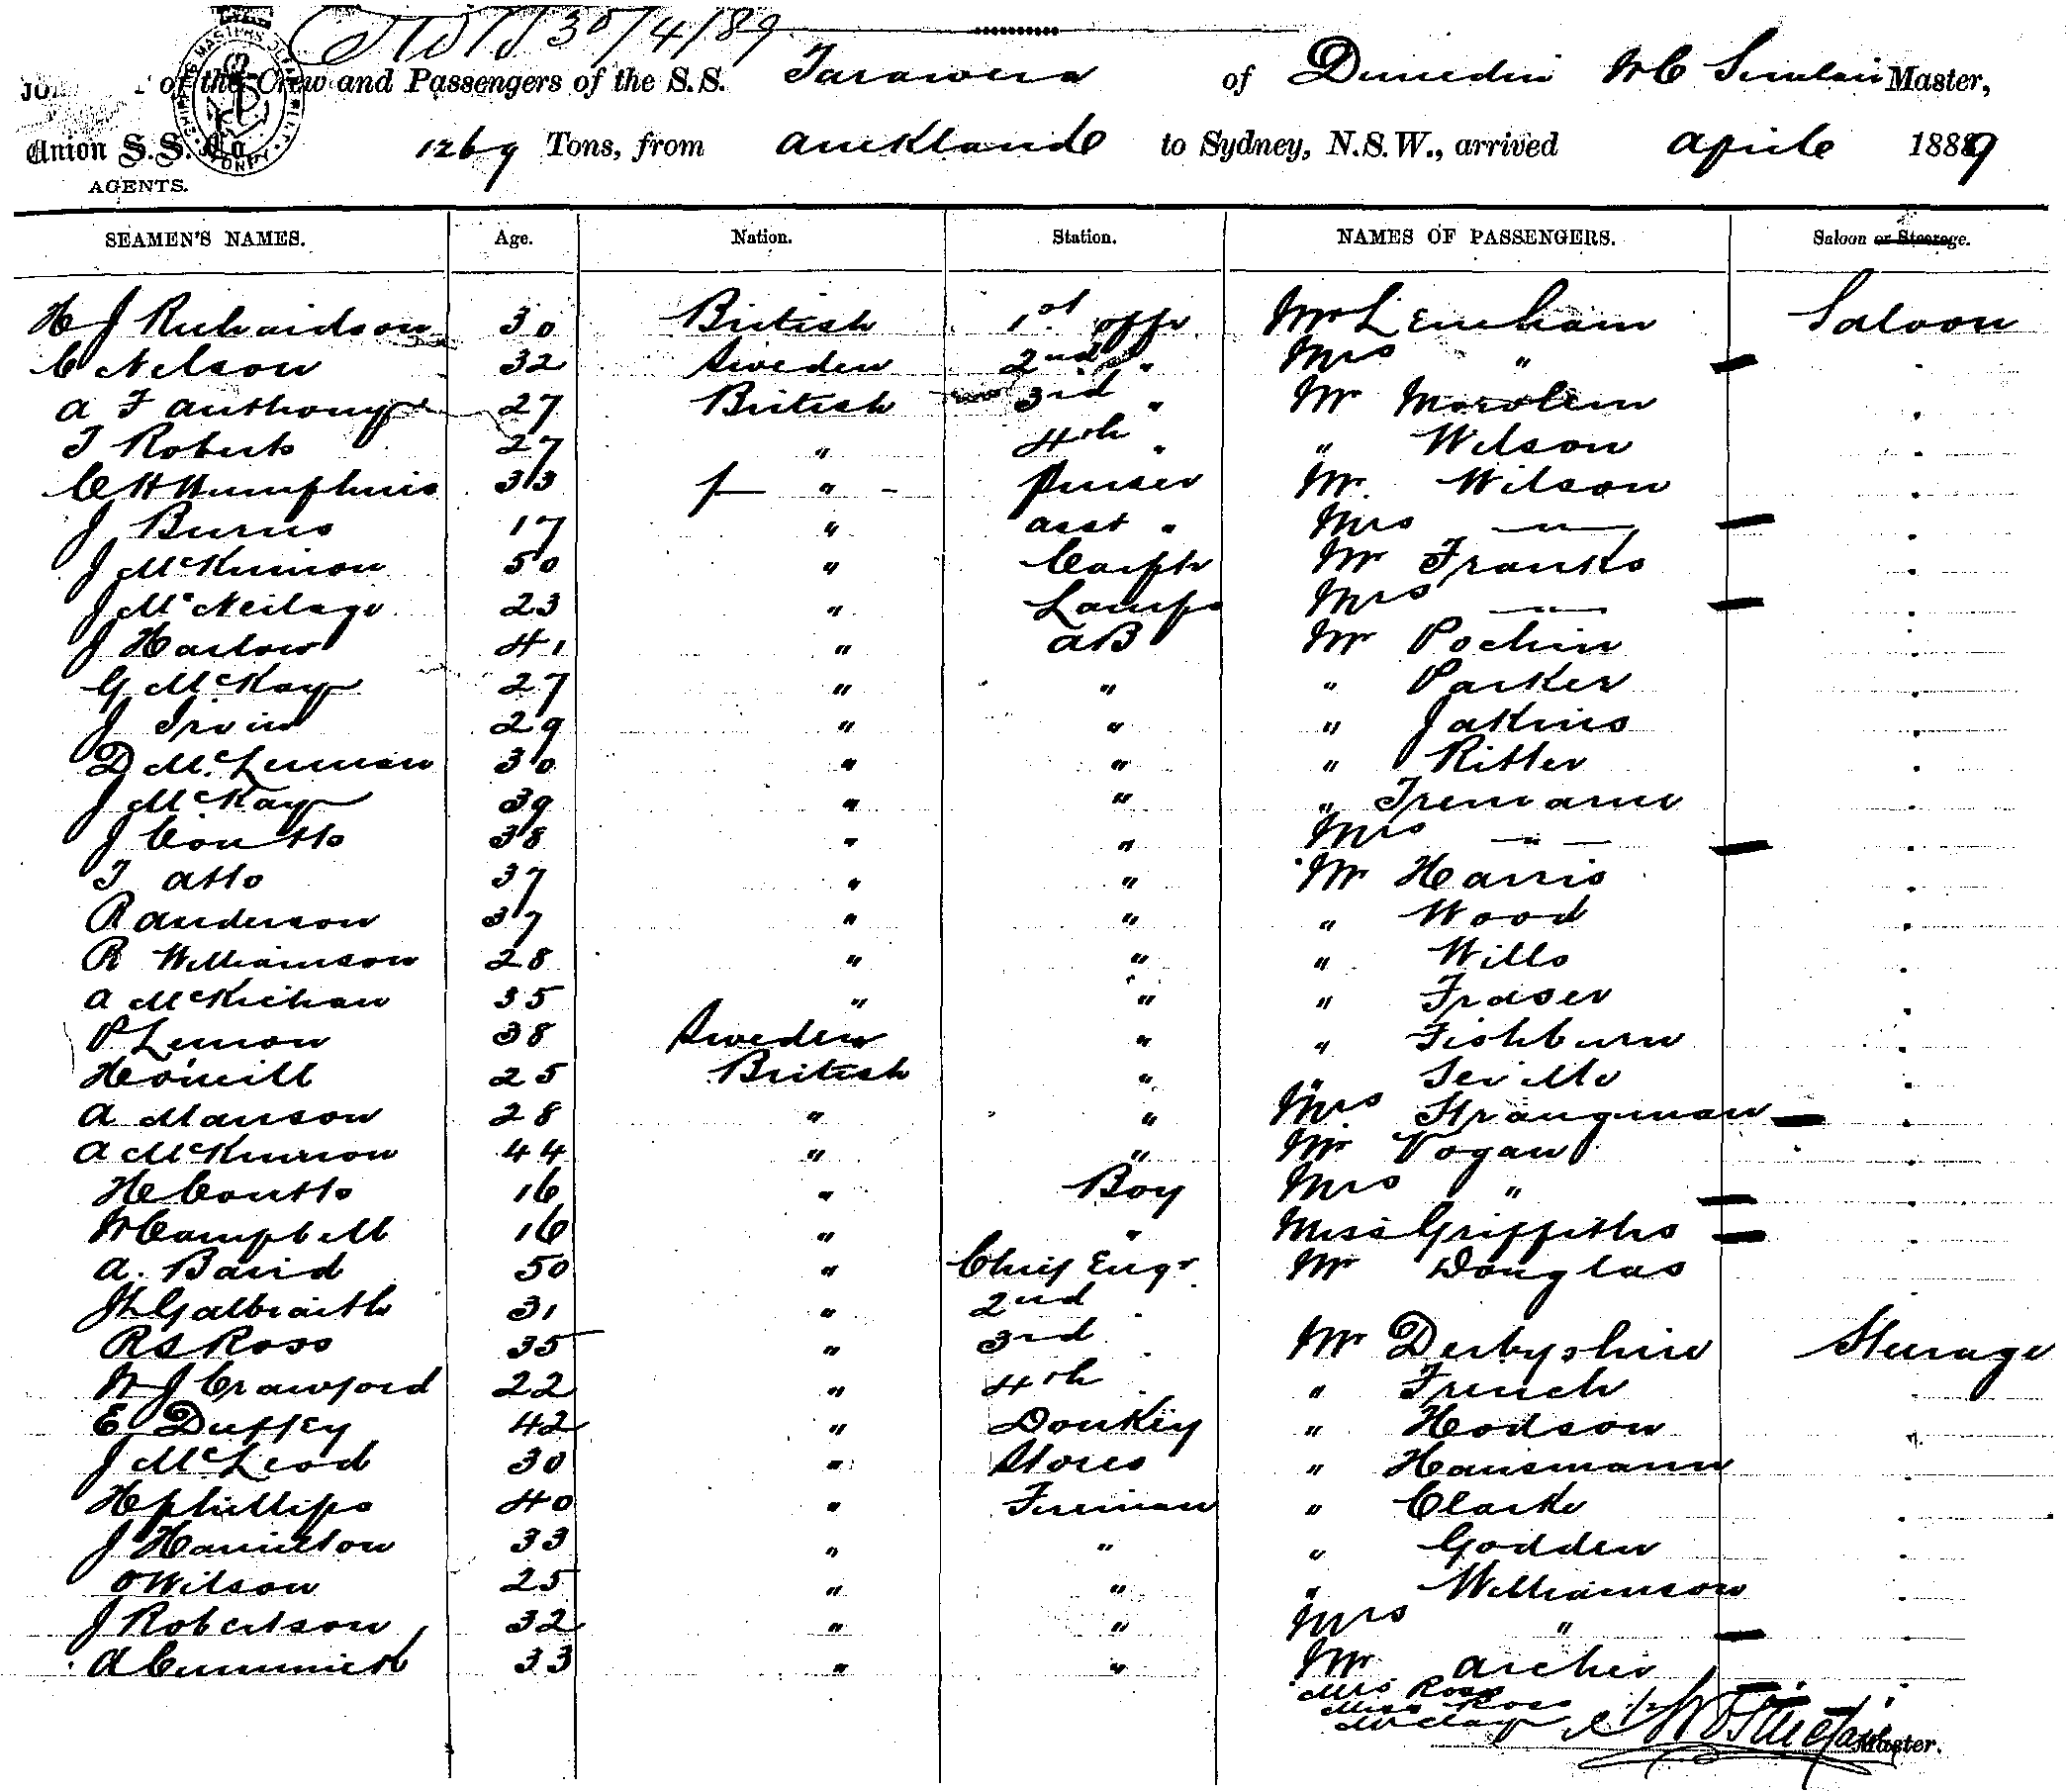 30/4/89
of the Crew and Passengers of the S.S. Tarawera of Dunedin W C Sinclair Master,
Union S.S. Co 1269 Tons, from Auckland to Sydney, N.S.W., arrived April 1889
AGENTS.
SEAMEN'S NAMES. Age. Nation. Station. NAMES OF PASSENGERS. Saloon or Steerage.
H J Richardson 30 British 1st offr Mr Leneham Saloon
C Nelson 32 Sweden 2nd " Mrs " "
A F Anthony 27 British 3rd " Mr "
T Roberts 27 " 4th " " Wilson "
C H Humphries 33 " Purser Mr Wilson "
J Burns 17 " asst " Mrs " "
J McKinnon 50 " Carptr Mr Franks "
J McNeilage 23 " Lamps Mrs " "
J Harlow 41 " AB Mr Pochin "
G McKay 27 " " " Parker "
J Irvin 29 " " " Jakins "
D McLennan 30 " " " Ritter "
J McKay 39 " " " Tremarne "
J Coutts 38 " " Mrs " "
T Atto 37 " " Mr Harris "
R Anderson 37 " " " Wood "
R Williamson 28 " " " Wills "
A McKichan 35 " " " Fraser "
P Lemon 38 Sweden " " Fishburn "
H O'neill 25 British " " Seville "
A Manson 28 " " Mrs Strangman "
A McKinnon 44 " " Mr Vogan "
H Coutts 16 " Boy Mrs " "
W Campbell 16 " " Miss Griffiths "
A. Baird 50 " Chief Engr Mr Douglas
J L Galbraith 31 " 2nd "
R S Ross 35 " 3rd " Mr Derbyshire Steerage
W J Crawford 22 " 4th " " French "
E Duffey 42 " Donkey " Hodson "
J McLeod 30 " Stores " Hansmann "
H Phillips 40 " Fireman " Clarke "
J Hamilton 33 " " " Godden "
O Wilson 25 " " " Williamson "
J Robertson 32 " " Mrs " "
A 33 " " Mr Archer
Mrs Ross
Miss Ross
Master.